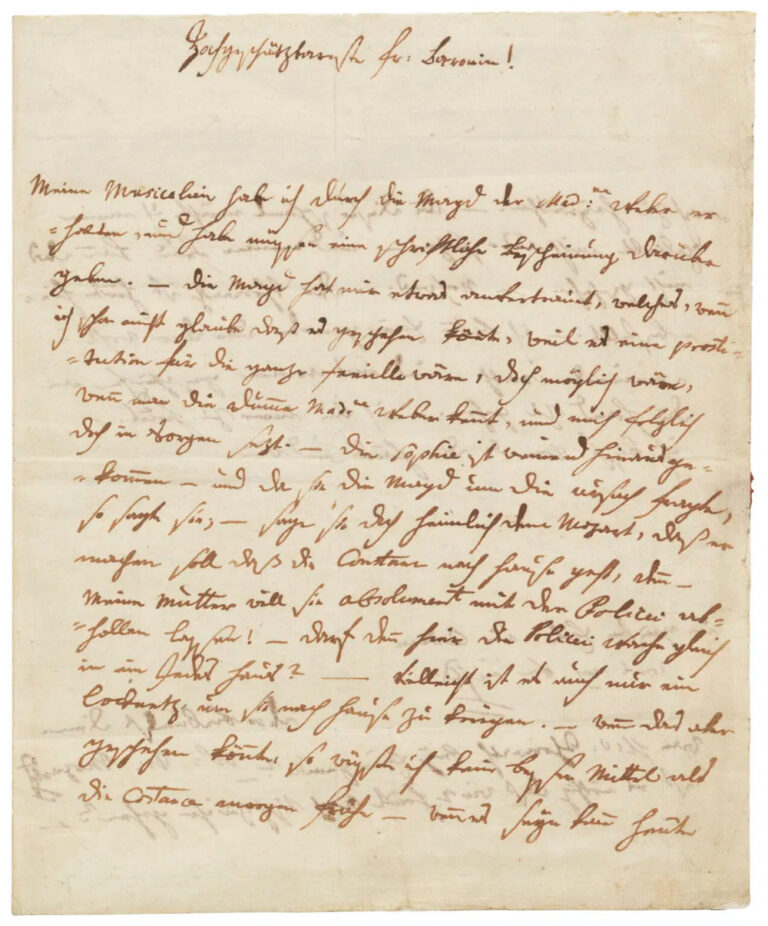 Hochgeschätzbareste fr: Baronin!
Meine Musicalien habe ich durch die Magd der Mad:me Weber er-
=halten, und habe müssen eine schriftliche bescheinung darüber
geben. — die Magd hat mir etwas anvertrauet, welches, wenn
ich schon nicht glaube daß es geschehen könte, weil es eine prosti-
=tution für die ganze familie wäre, doch möglich wäre,
wenn man die dumme Mad:me Weber kennt, und mich folglich
doch in Sorgen sezt. — die Sophie ist weinend hinausge-
=kommen — und da sie die Magd um die ursach fragte,
so sagte sie; — sage sie doch heimlich dem Mozart, daß er
machen soll daß die Constanz nach hause geht, denn —
meine Mutter will sie absolument mit der Policei ab-
=hollen lassen! — darf denn hier die Policei Wache gleich
in ein Jedes haus? — vielleicht ist es auch nur ein
locknetz um sie nach hause zu kriegen. — wenn das aber
geschehen könnte, so wüsste ich kein besser Mittel als
die Costance morgen frühe — wenns seyn kann heute